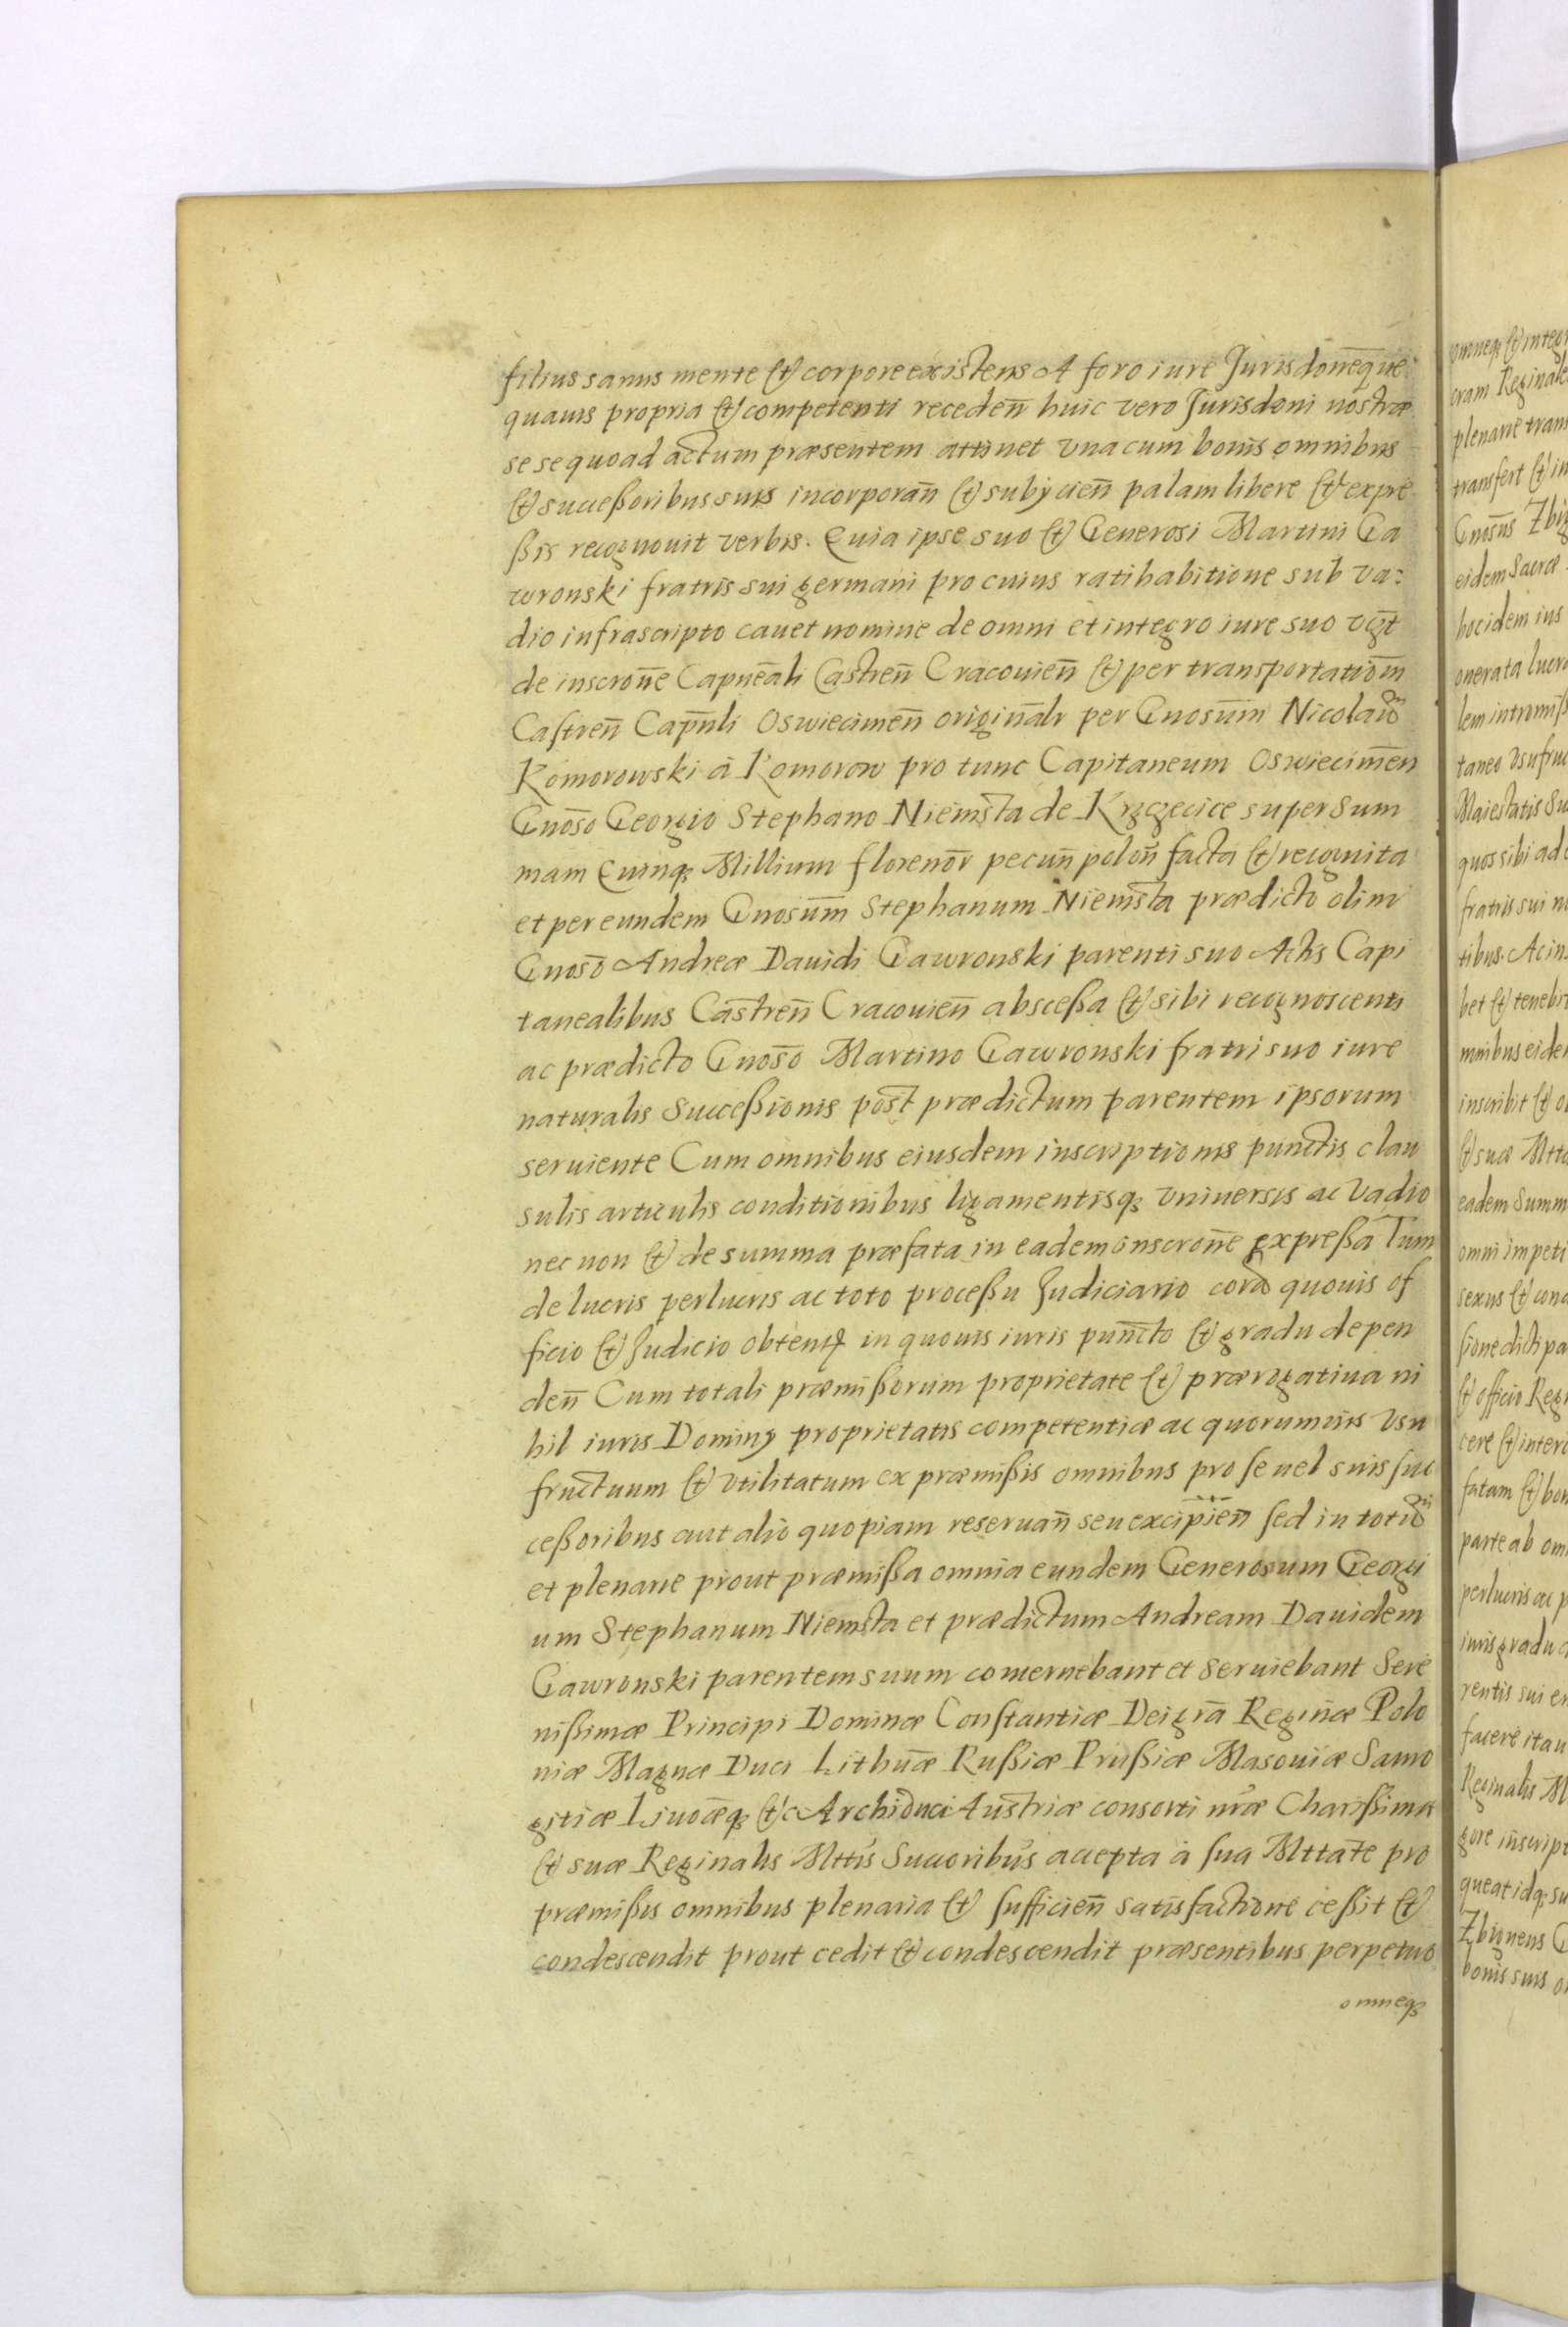 filius sanus mente et corpore existens A foro iure Jurisdon̄eque
quauis propria et competenti receden̄ huic vero Jurisdoni nostræ
se se quoad actum præsentem attinet vna cum bonis omnibus
et successoribus suis incorporan̄ et subÿcien̄ palam libere et expre
ssis recognouit verbis. Quia ipse suo et Generosi Martini Ga
wronski fratris sui germani pro cuius ratihabitione sub va:
dio infrascripto cauet nomine de omni et integro iure suo vgt̄
de inscron̄e Capnēali Castren̄ Cracouien̄ et per transportatiom̄
Castren̄ Capn̄li Oswiecimen̄ originālr per Gnosum̄ Nicolaū
Komorowski à Komorow pro tunc Capitaneum Oswiecimen̄
Gnōso Georgio Stephano Niemsta de Krzczecice super Sum
mam Quinq; Millium florenōr pecun̄ polon̄ facta et recognita
et per eundem Gnosum̄ Stephanum Niemsta prædicto olim
Gnosō Andreæ Dauidi Gawronski parenti suo Actis Capi
tanealibus Castren̄ Cracouien̄ abscessa et sibi recognoscenti
ac prædicto Gnosō Martino Gawronski fratri suo iure
naturalis Successionis post prædictum parentem ipsorum
seruiente Cum omnibus eiusdem inscriptionis punctis clau
sulis articulis conditionibus ligamentisq; vniuersis ac Vadio
nec non et de summa præfata in eadem inscron̄e expressa Tum
de lucris perlucris ac toto processu Judiciario corā quouis of
ficio et Judicio obtentꝭ in quouis iuris puncto et gradu depen
den̄ Cum totali præmissorum proprietate et prærogatiua ni
hil iuris Dominÿ proprietatis competentiæ ac quorumuis vsu
fructuum et vtilitatum ex præmissis omnibus pro se uel suis suc
cessoribus aut alio quopiam reseruan̄ seu excipien̄ sed in totū
et plenarie prout præmissa omnia eundem Generosum Georgi
um Stephanum Niemsta et prædictum Andream Dauidem
Gawronski parentem suum concernebant et seruiebant Sere
nissimæ Principi Dominæ Constantiæ Dei grā Reginæ Polo
niæ Magnæ Duci Lithuæ Russiæ Prussiæ Masouiæ Samo
gitiæ Liuoæq; etc Archiduci Austriæ consorti nræ Charissimæ
et suæ Reginalis Mttis Succoribus accepta à sua Mttate pro
præmissis omnibus plenaria et sufficien̄ satisfactione cessit et
condescendit prout cedit et condescendit præsentibus perpetuo
omneq;
omneq; et integr
cram Reginale
plenarie trans
transfert et in
Gnosus̄ Zbig
eidem Sacræ
hoc idem ius
onerata lucra
lem intromiss
taneo vsufruc
Maiestatis Su
quos sibi ad
fratris sui
tibus. Ac in
bet et tenebit
mnibus eiden
inscribit et
et suæ Mtta
eadem Summ
omni impeti
sexus et cond
sione dicti pa
et officio Regi
cere et interc
fatam et bon
parte ab om
perlucris ac p
iuris gradu
rentis sui
facere ita
Reginalis M
gore inscript
queat idq; su
Zbigneus G
bonis suis